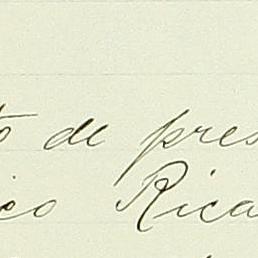 to de pres
ico Rica